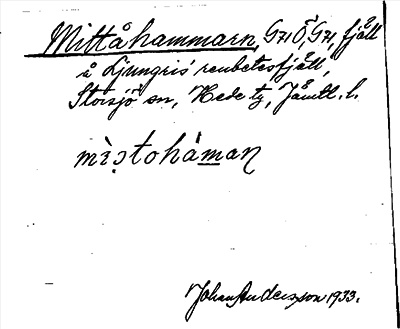 Mittåhammarn, G71Ö, G71, fjäll
å Ljungris renbetesfjäll,
Storsjö sn, Hede tg, Jämtl. l.
mìstohàman
Johan Anderzson 1933.